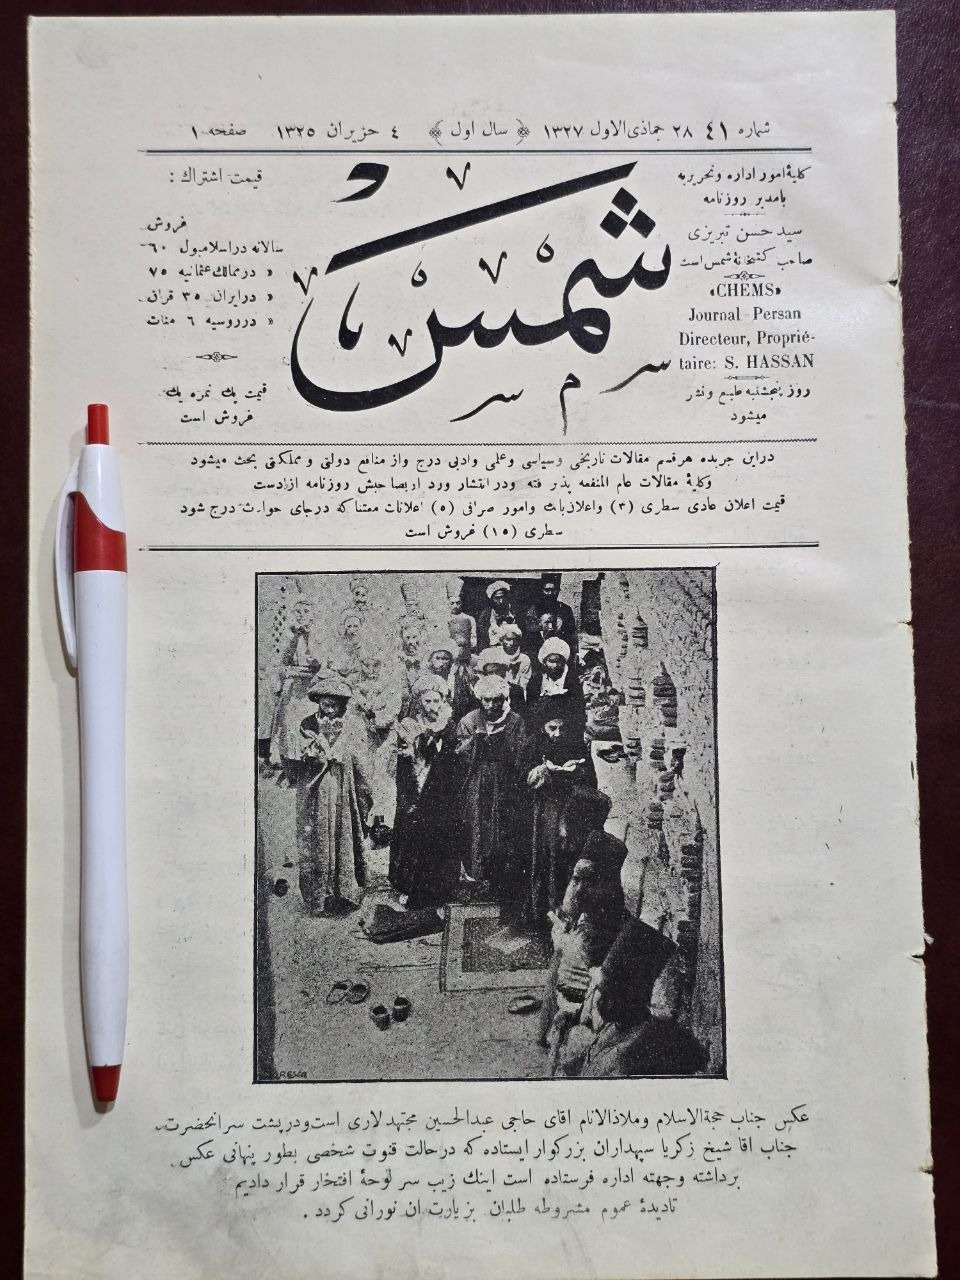 شماره ٤١ ٢٨ جماذی‌الاول ١٣٢٧ ﴿ سال اول ﴾ ٤ حزیران ١٣٢٥ صفحه ١
کلیهٔ امور اداره و تحریریه
بامدیر روزنامه
سید حسن تبریزی
صاحب کتبخانهٔ شمس است
«CHEMS»
Journal Persan
Directeur, Proprié-
taire: S. HASSAN
روز پنجشنبه طبع و نشر
میشود
شمس
قیمت اشتراك :
فروش
سالانه در اسلامبول ٦٠
« در ممالك عثمانیه ٧٥
« در ایران ٣٥ قران
« در روسیه ٦ منات
قیمت یك نمره یك
فروش است
دراین جریده هرقسم مقالات تاریخی وسیاسی وعلمی وادبی درج واز منافع دولتی ومملکتی بحث میشود
وکلیهٔ مقالات عام المنفعه پذیرفته ودر انتشار ورد اربصاحبش روزنامه ازادست
قیمت اعلان عادی سطری (٣) واعلان بانك وامور صرافی (٥) اعلانات معتنا که درجای حوادث درج شود
سطری (١٥) فروش است
عکس جناب حجة‌الاسلام وملاذالانام اقای حاجی عبدالحسین مجتهد لاری است ودر پشت سر انحضرت
جناب اقا شیخ زکریا سپهداران بزرکوار ایستاده که درحالت قنوت شخصی بطور پنهانی عکس
برداشته وجهته اداره فرستاده است اینك زیب سر لوحهٔ افتخار قرار دادیم
تادیدهٔ عموم مشروطه طلبان بزیارت ان نورانی کردد .